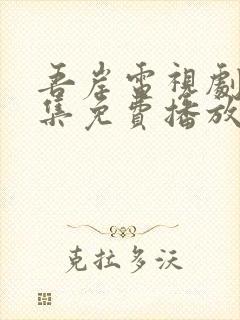 吾岸雷視劇
集免費播放
克拉多沃